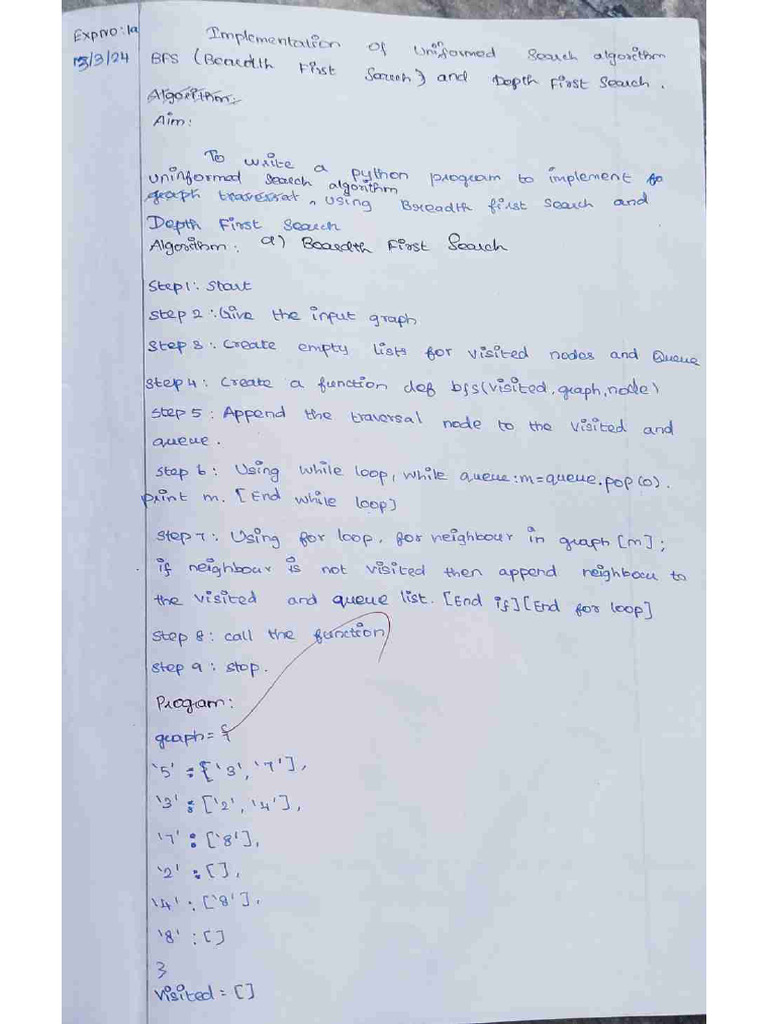 Expno:1a
Implementation of uniformed search algorithm
13/3/24 BFS (Boeadth First Search) and Depth First Search.
Algorithm:
Aim:
To write a python program to implement
uninformed search algorithm
graph traversal, using Breadth first search and
Depth First Search
Algorithm: a) Boeadth First Search
Step1: Start
Step 2: Give the input graph
Step 3: Create empty lists for visited nodes and Queue
Step 4: Create a function def bfs(visited,graph,node)
Step 5: Append the traversal node to the visited and
queue.
Step 6: Using while loop, while queue:m=queue.pop(0).
print m. [End while loop]
Step 7: Using for loop, for neighbour in graph [m];
if neighbour is not visited then append neighbour to
the visited and queue list. [End if][End for loop]
Step 8: call the function
Step 9: stop.
Program:
graph={
'5' : ['3','7'],
'3' : ['2','4'],
'7' : ['8'],
'2' : [],
'4' : ['8'],
'8' : []
}
visited = []